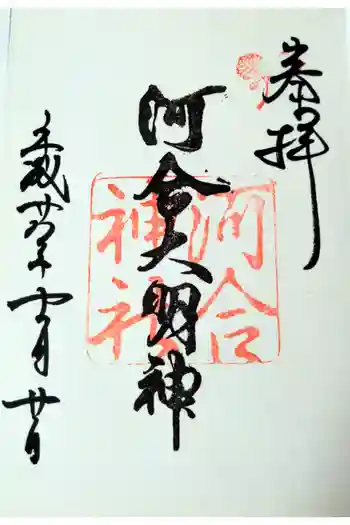 奉拝
河合大明神
河合
神社
平成廿
月廿日